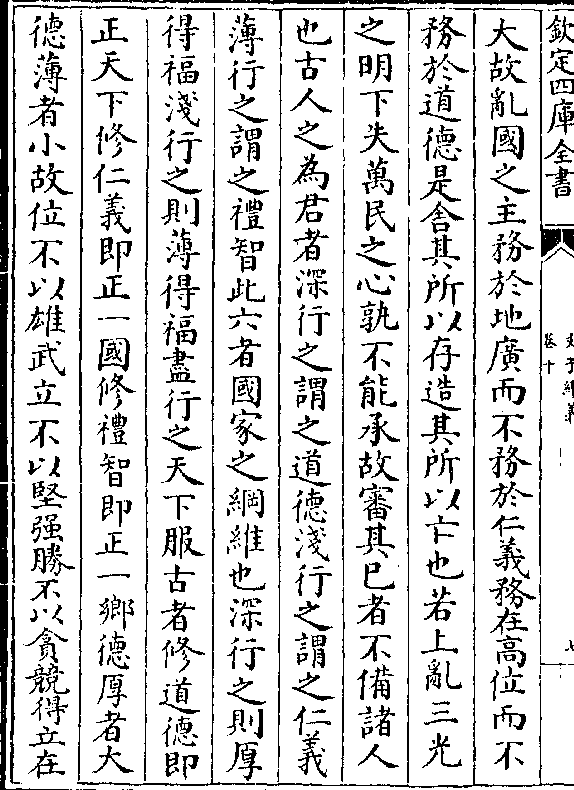 欽定四庫全書
卷十
大故亂國之主務於地廣而不務於仁義務在高位而不
務於道德是舍其所以存造其所以亡也若上亂三光
之明下失萬民之心孰不能承故審其已者不備諸人
也古人之為君者深行之謂之道德淺行之謂之仁義
薄行之謂之禮智此六者國家之綱維也深行之則厚
得福淺行之則薄得福盡行之天下服古者修道德即
正天下修仁義即正一國修禮智即正一鄉德厚者大
德薄者小故位不以雄武立不以堅强勝不以貪競得立在